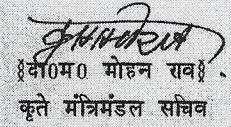 §वी0म0 मोहन राव§
कृते मंत्रिमंडल सचिव